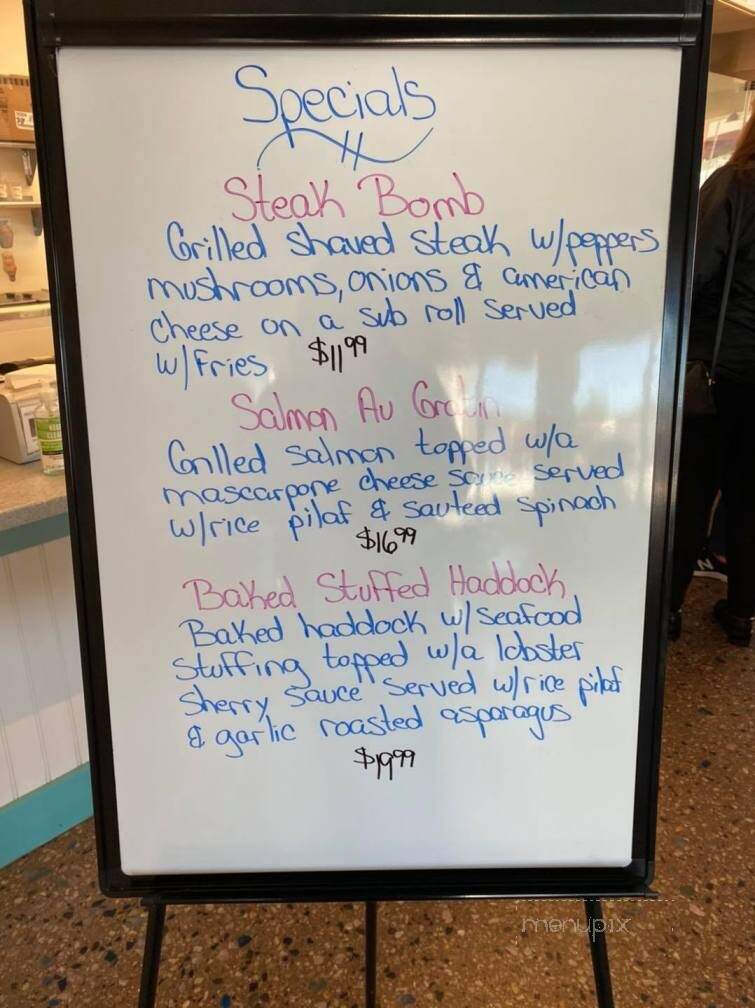 Specials
Steak Bomb
Grilled shaved steak w/peppers
mushrooms, onions & american
cheese on a sub roll served
w/Fries $11.99
Salmon Au Gratin
Grilled salmon topped w/a
mascarpone cheese sauce served
w/rice pilaf & sauteed spinach
$16.99
Baked Stuffed Haddock
Baked haddock w/seafood
stuffing topped w/a lobster
sherry sauce served w/rice pilaf
& garlic roasted asparagus
$19.99
menupix